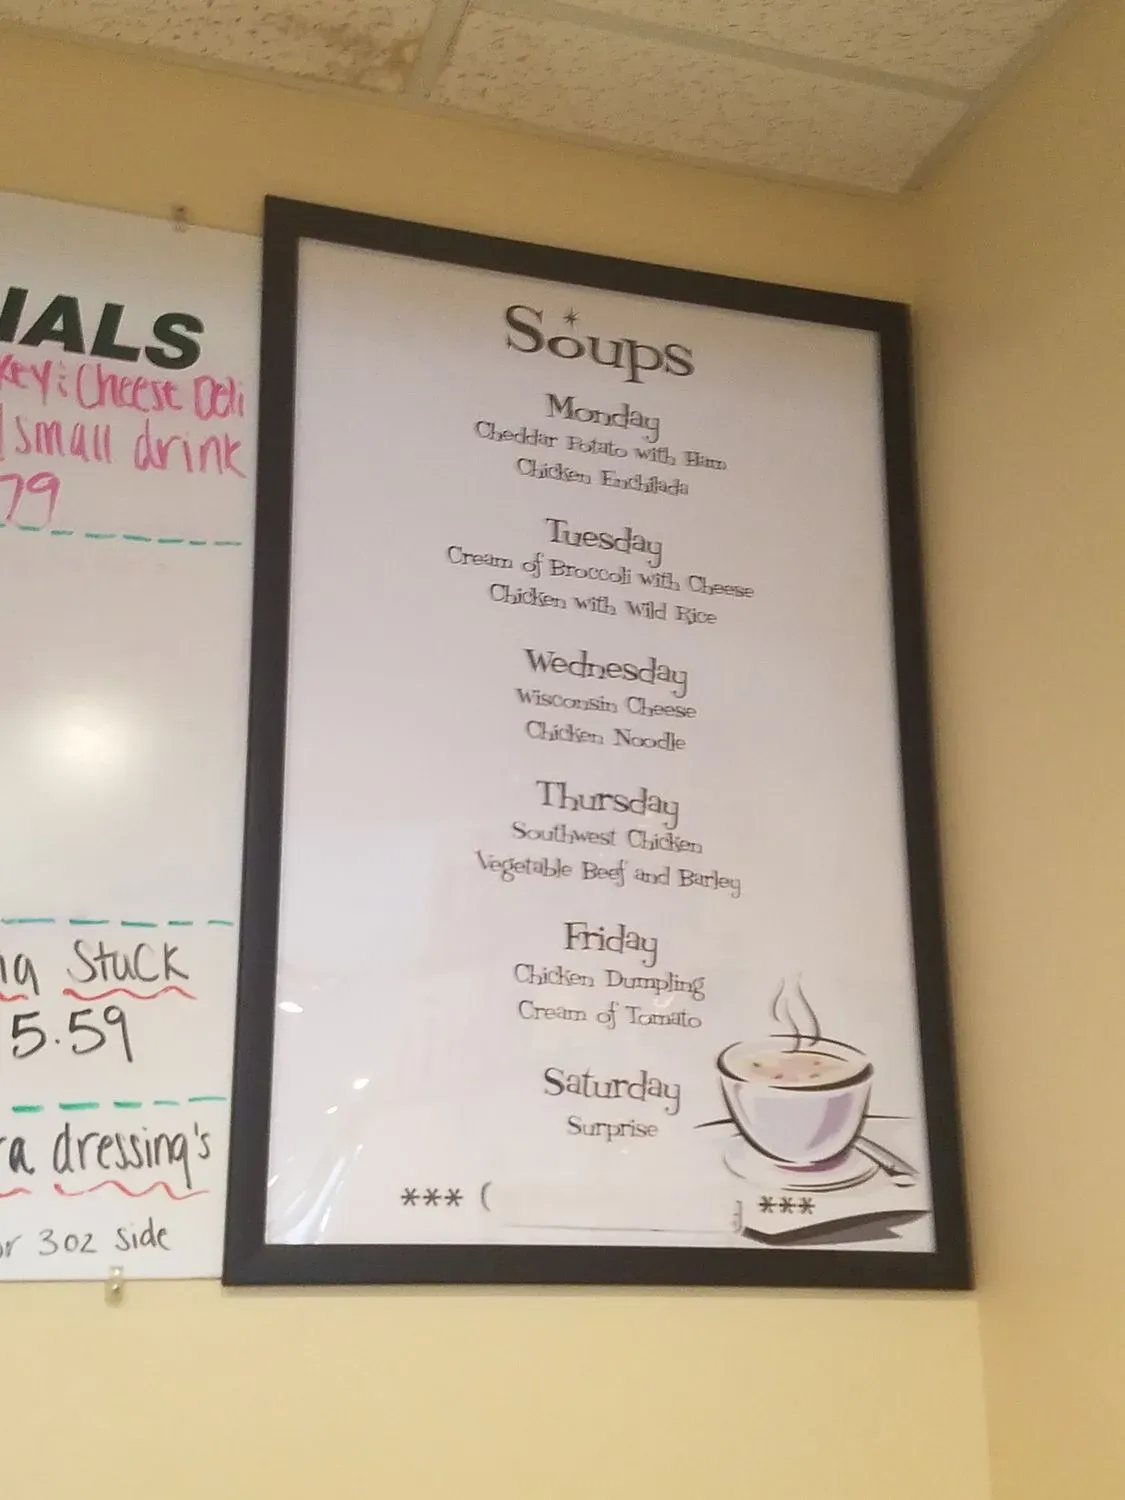 IALS
key & Cheese Deli
small drink
79
Stuck
5.59
dressing's
3oz side
Soups
Monday
Cheddar Potato with Ham
Chicken Enchilada
Tuesday
Cream of Broccoli with Cheese
Chicken with Wild Rice
Wednesday
Wisconsin Cheese
Chicken Noodle
Thursday
Southwest Chicken
Vegetable Beef and Barley
Friday
Chicken Dumpling
Cream of Tomato
Saturday
Surprise
*** ( ) ***